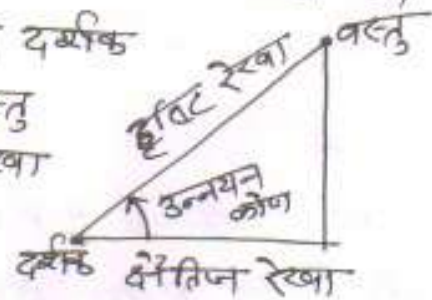 दर्शक
वस्तु
स्तु
दृष्टि रेखा
खा
उन्नयन
कोण
दर्शक
क्षैतिज रेखा